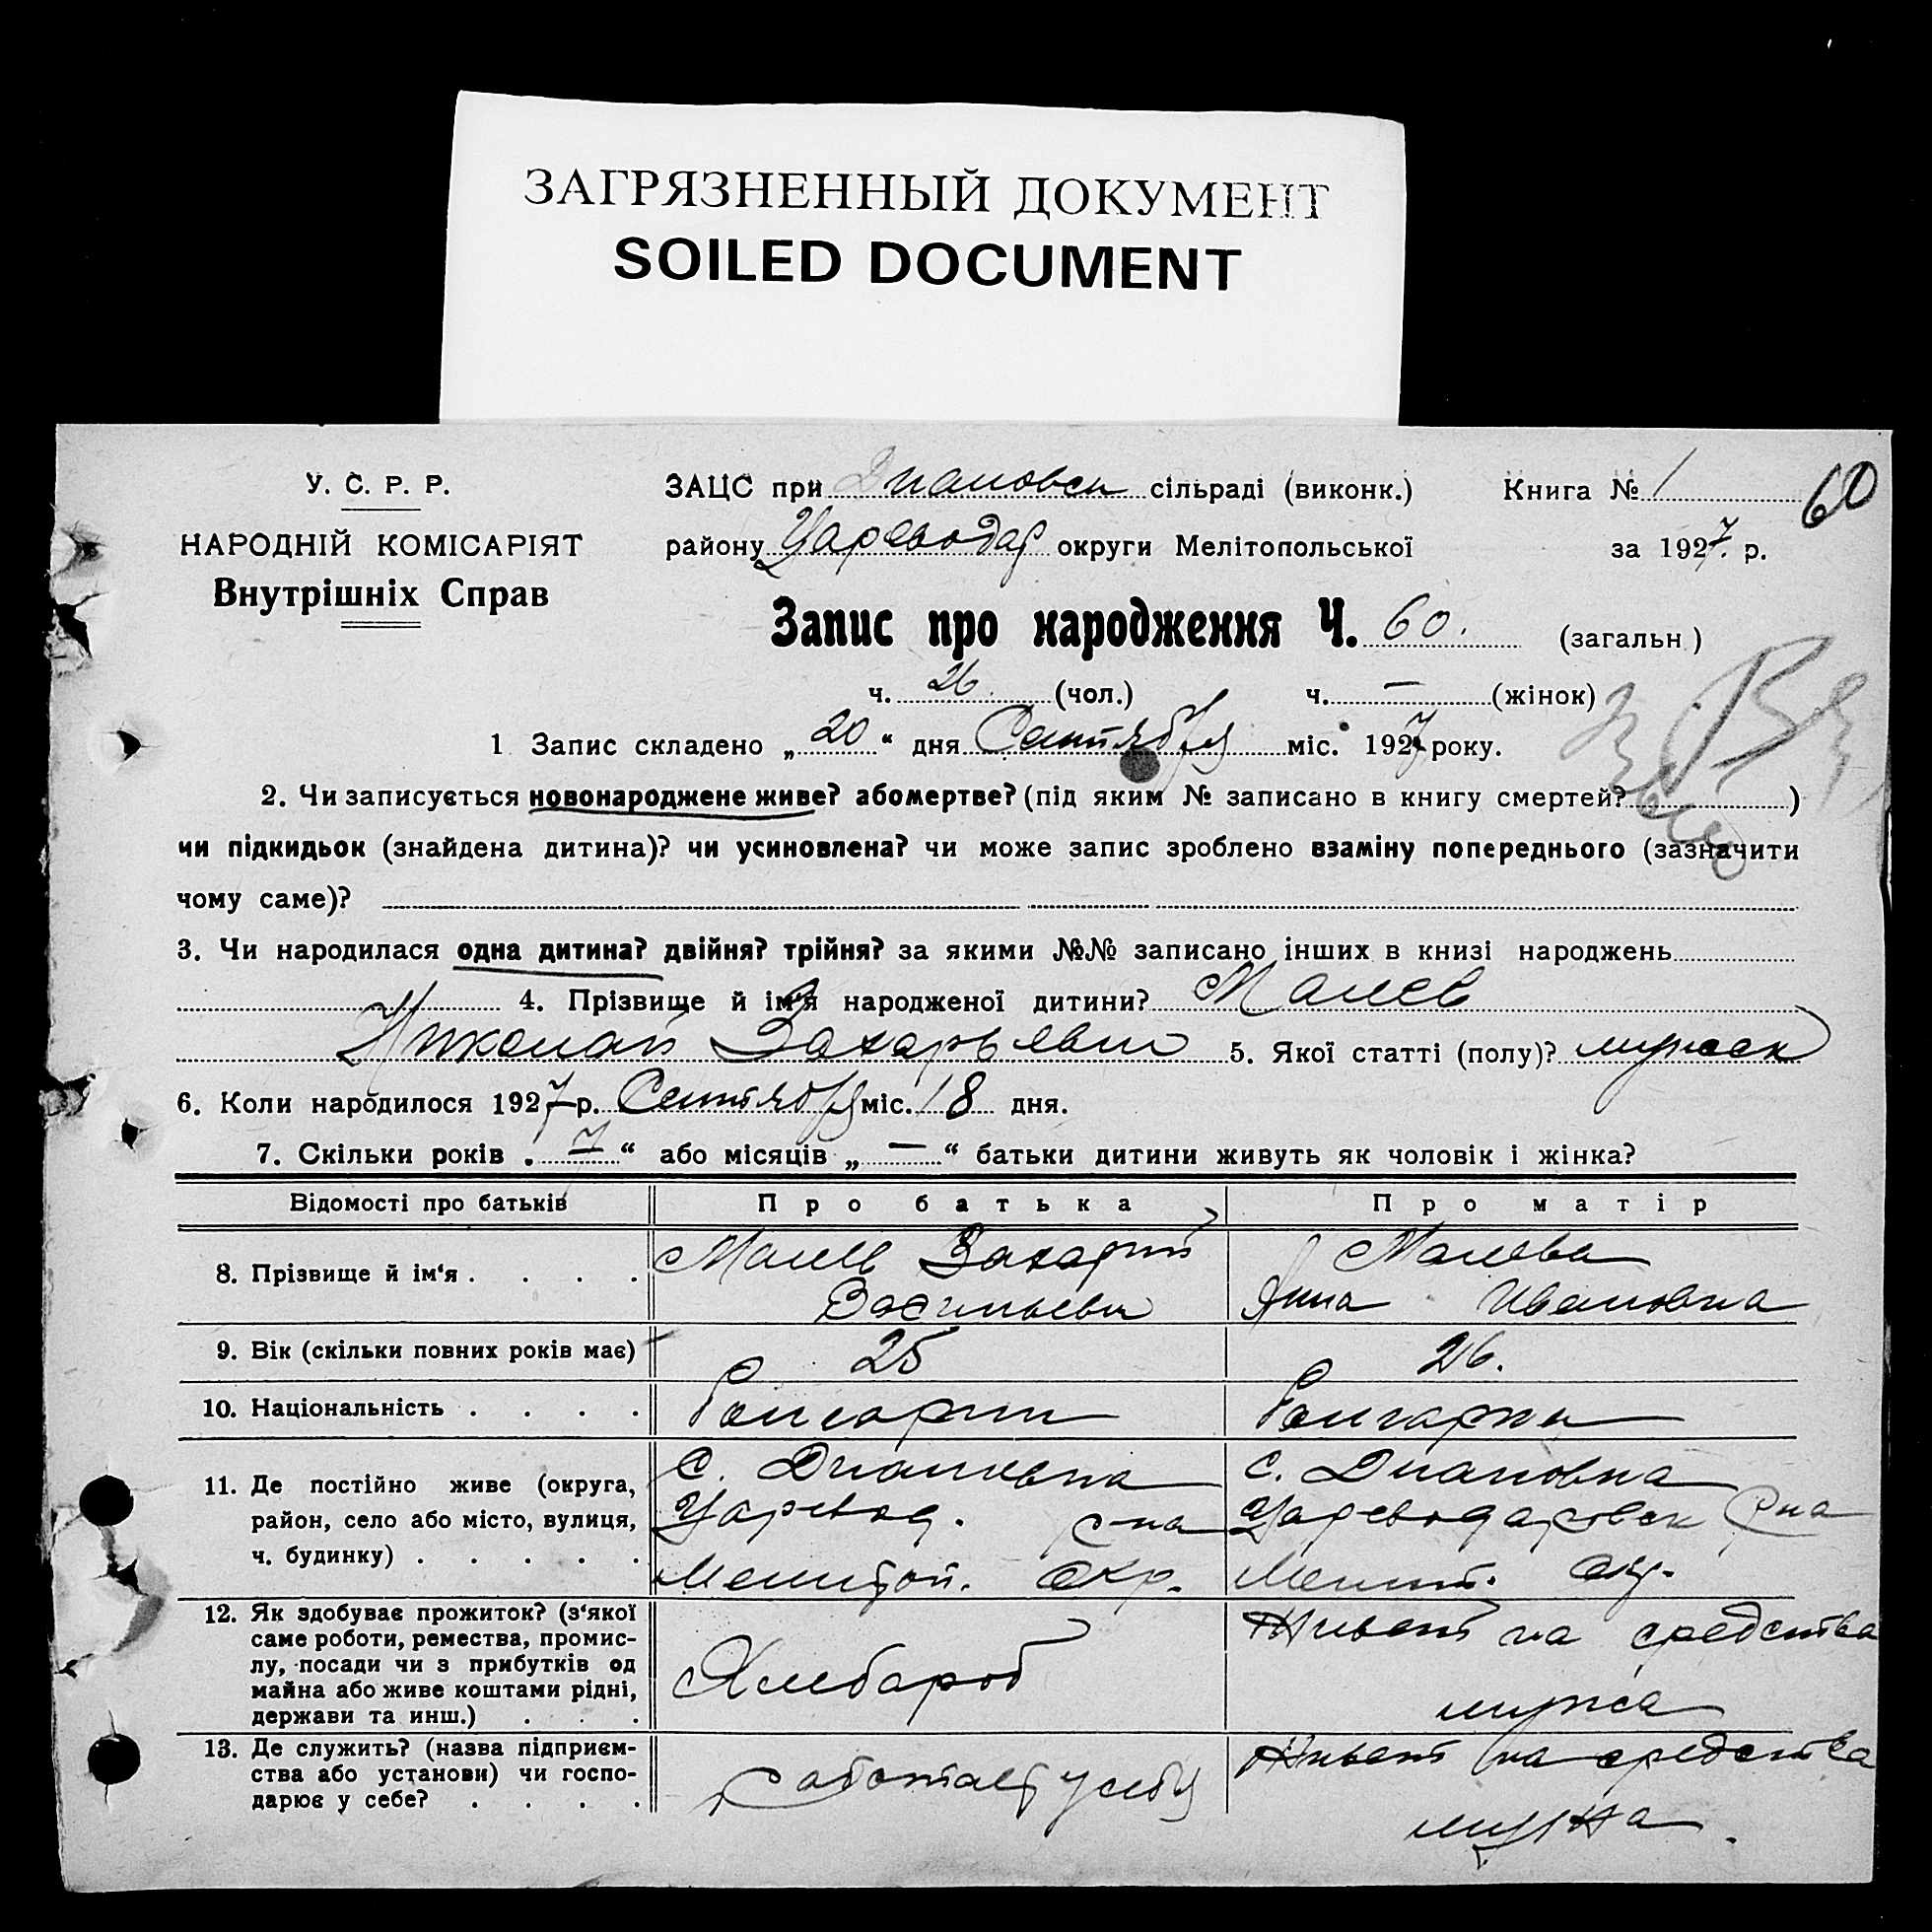 ЗАГРЯЗНЕННЫЙ ДОКУМЕНТ
SOILED DOCUMENT
У. С. Р. Р.
НАРОДНІЙ КОМІСАРІЯТ
Внутрішніх Справ
ЗАЦС при Диановск сільраді (виконк.) Книга № 1 60
району Цареводар округи Мелітопольської за 1927 р.
Запис про народження Ч. 60. (загальн)
ч. 26. (чол.) ч. — (жінок)
1 Запис складено „ 20 “ дня Сентября міс. 1927 року.
2. Чи записується новонароджене живе? або мертве? (під яким № записано в книгу смертей? )
чи підкидьок (знайдена дитина)? чи усиновлена? чи може запис зроблено взаміну попереднього (зазначити
чому саме)?
3. Чи народилася одна дитина? двійня? трійня? за якими №№ записано інших в книзі народжень
4. Прізвище й ім'я народженої дитини? Малев
Николай Захарьевич 5. Якої статті (полу)? мужск
6. Коли народилося 1927 р. Сентября міс. 18 дня.
7. Скільки років „ 7 “ або місяців „ — “ батьки дитини живуть як чоловік і жінка?
Відомості про батьків Про батька Про матір
8. Прізвище й ім‘я . . . . Малев Захарий Малева
Васильевич Анна Ивановна
9. Вік (скільки повних років має) 25 26.
10. Національність . . . . Болгарин Болгарка
11. Де постійно живе (округа, С. Диановка С. Диановка
район, село або місто, вулиця, Царевод. р-на Цареводаровск р-на
ч. будинку) . . . . . Мелитоп. Окр. Мелит. Окр.
12. Як здобуває прожиток? (з‘якої Живет на средства
саме роботи, ремества, промис-
лу, посади чи з прибутків од Хлебороб
майна або живе коштами рідні, мужа
держави та инш.) . . .
13. Де служить? (назва підприєм- Живет на средства
ства або установи) чи госпо- работает у себя
дарює у себе? . . . . мужа.